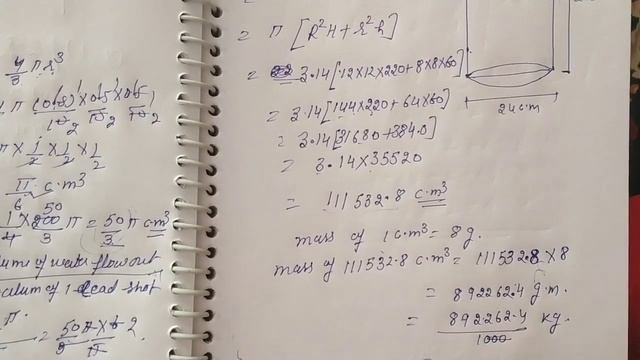 4/3 πr³
π (0.5) × 0.5 × 0.5
π × 1/2 × 1/2 × 1/2
π/6 c.m³
1/4 × 200/3 π = 50/3 π c.m³
of water flow out
of 1 lead shot
π.
= 50π × 6
= π [R²H + r²h]
= 3.14 [12×12×220 + 8×8×60]
= 3.14 [144×220 + 64×60]
= 3.14 [31680 + 3840]
= 3.14 × 35520
= 111532.8 c.m³
24 c.m
mass of 1 c.m³ = 8 g.
mass of 111532.8 c.m³ = 111532.8 × 8
= 892262.4 g.m.
= 892262.4/1000 kg.